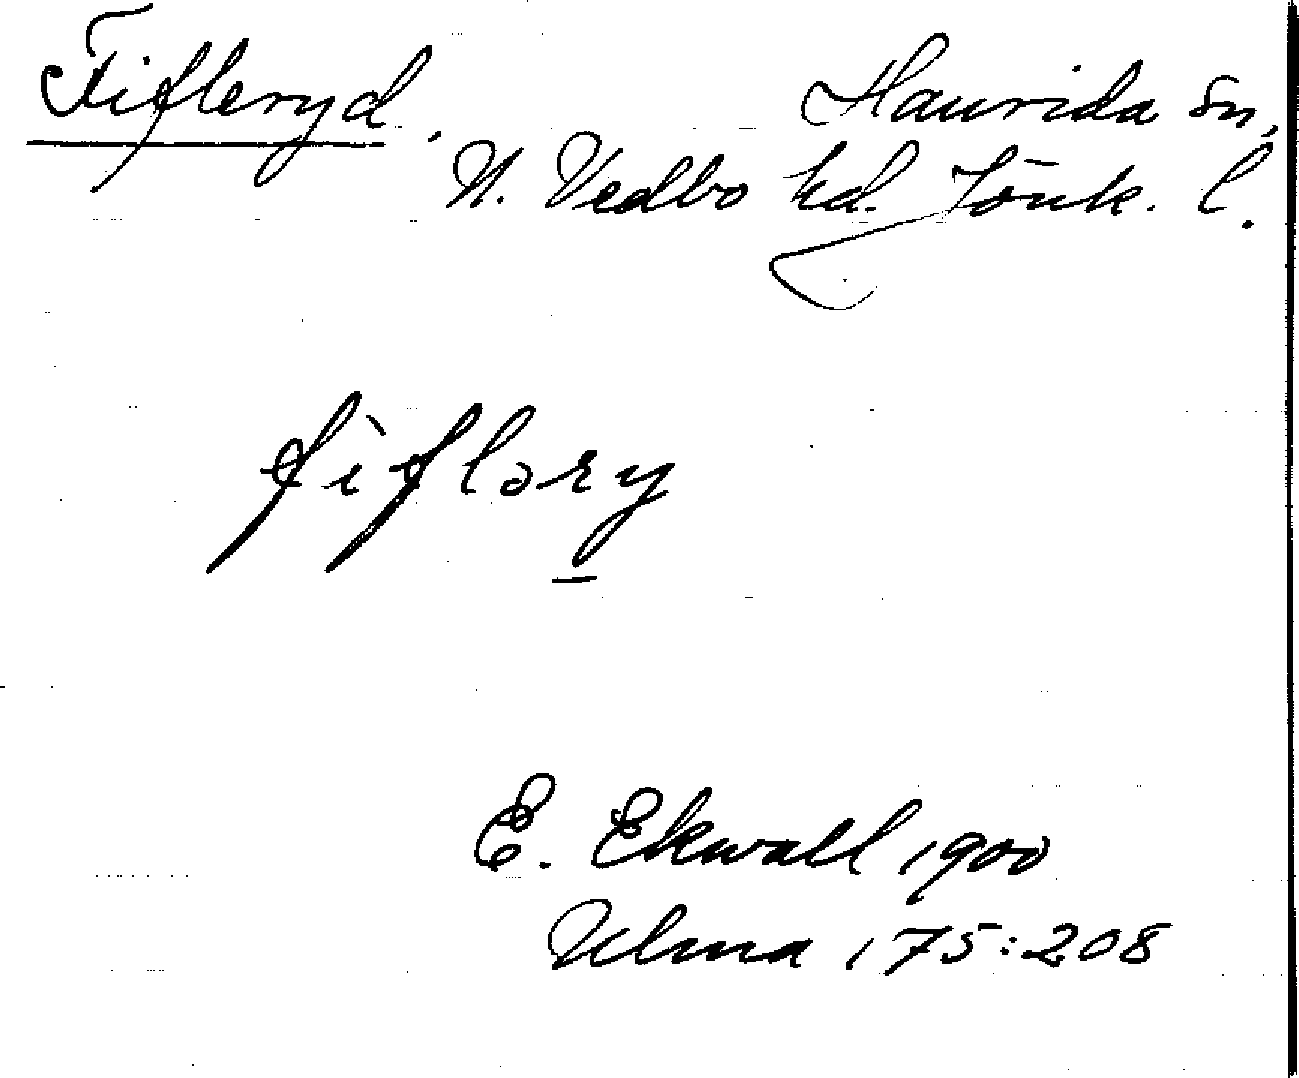 Fifleryd. Haurida sn,
N. Vedbo hd. Jönk. l.
fìfləry
E. Ekwall 1900
Ulma 175:208